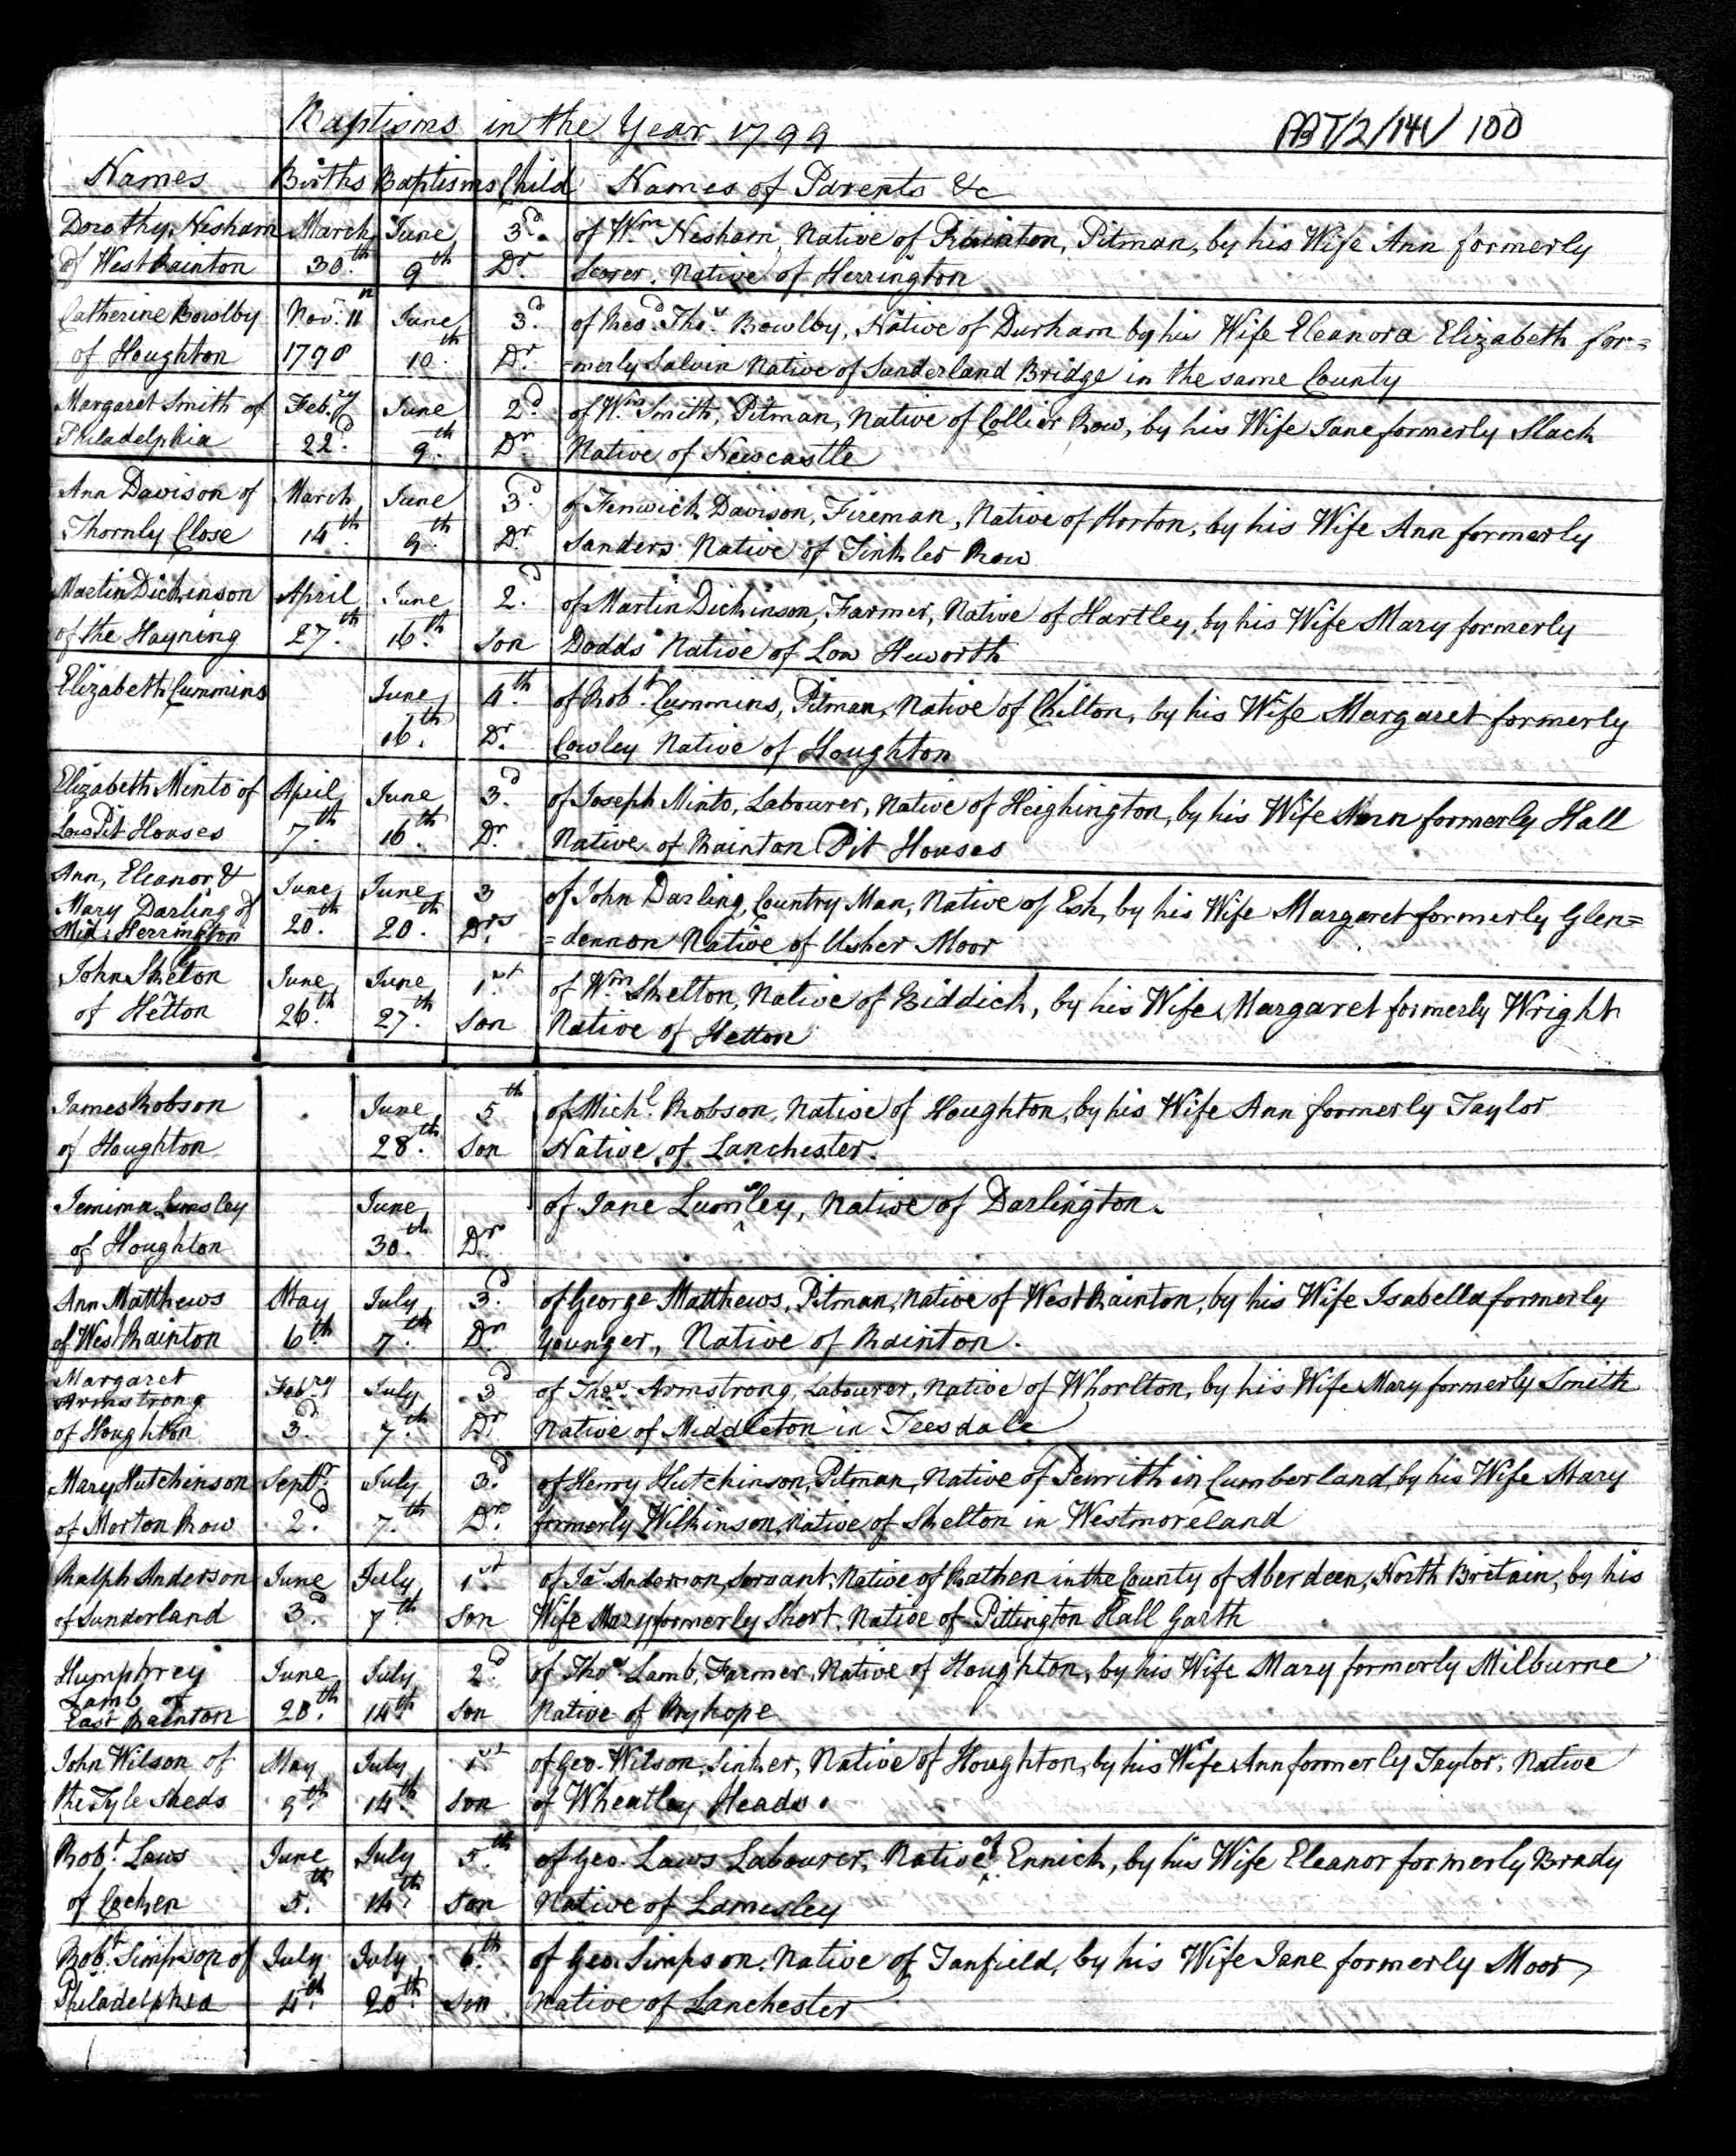 Baptisms in the Year 1799
Names Births Baptisms Child Names of Parents &c
Dorothy Nesham March June 3d. of Wm Nesham, Native of Rainton, Pitman, by his Wife Ann formerly
of West Rainton 30th. 9th Dr. Native of Herrington
Catherine Bowlby Novr. 11 June 3d. of Revd. Thos. Bowlby, Native of Durham by his Wife Eleanora Elizabeth for=
of Houghton 1798 10th. Dr. =merly Salvin Native of Sunderland Bridge in the same County
Margaret Smith of Feb.ry June 2d. of Wm. Smith, Pitman, Native of Collier Row, by his Wife Jane formerly Slack
Philadelphia 22d. 9th. Dr. Native of Newcastle
Ann Davison of March June 3d. of Fenwick Davison, Fireman, Native of Horton, by his Wife Ann formerly
Thornly Close 14th. 9th. Dr. Sanders Native of Tinkler Row
Martin Dickinson April June 2d. of Martin Dickinson, Farmer, Native of Hartley, by his Wife Mary formerly
of the Hayning 27th. 16th. Son Dodds Native of Low Heworth
Elizabeth Cummins June 4th. of Robt. Cummins, Pitman, Native of Chilton, by his Wife Margaret formerly
16th. Dr. Cowley Native of Houghton
Elizabeth Minto of April June 3d. of Joseph Minto, Labourer, Native of Heighington, by his Wife Ann formerly Hall
Low Pit Houses 7th. 16th. Dr. Native of Rainton Pit Houses
Ann, Eleanor, & June June 3 of John Darling, Country Man, Native of Esh, by his Wife Margaret formerly Glen=
Mary Darling of 20th. 20th. Drs. =dennon Native of Usher Moor
Mid: Herrington
John Shelton June June 1st. of Wm Shelton, Native of Biddick, by his Wife Margaret formerly Wright
of Hetton 26th. 27th. Son Native of Hetton
James Robson June 5th of Michl. Robson, Native of Houghton, by his Wife Ann formerly Taylor
of Houghton 28th. Son Native of Lanchester.
Jemima Lumsley June of Jane Lumsley, Native of Darlington.
of Houghton 30th. Dr.
Ann Matthews May July 3d. of George Matthews, Pitman, Native of West Rainton, by his Wife Isabella formerly
of West Rainton 6th 7th. Dr. Younger, Native of Rainton.
Margaret Feb.ry July 3d of Thos. Armstrong, Labourer, Native of Whorlton, by his Wife Mary formerly Smith
Armstrong
of Houghton 3d. 7th. Dr. Native of Middleton in Teesdale
Mary Hutchinson Septr. July 3d. of Henry Hutchinson, Pitman, Native of Penrith in Cumberland, by his Wife Mary
of Morton Row 2d. 7th. Dr. formerly Wilkinson, Native of Shelton in Westmoreland
Ralph Anderson June July 1st. of Jas. Anderson, Servant, Native of Rathen in the County of Aberdeen, North Britain, by his
of Sunderland 3d. 7th Son Wife Mary formerly Short, Native of Pittington Hall Garth
Humphrey June July 2d. of Thos. Lamb, Farmer, Native of Houghton, by his Wife Mary formerly Milburne
Lamb of
East Rainton 20th. 14th. Son Native of Ryhope
John Wilson of May July 1st of Geo. Wilson, Sinker, Native of Houghton, by his Wife Ann formerly Taylor, Native
the Tyle Sheds 9th. 14th. Son of Wheatley Heads.
Robt. Laws June July 5th. of Geo. Laws Labourer, Native of Ennick, by his Wife Eleanor formerly Brady
of Cocken 5th. 14th. Son Native of Lamesley
Robt. Simpson of July July 6th. of Geo. Simpson, Native of Tanfield, by his Wife Jane formerly Moor,
Philadelphia 4th. 20th. Son Native of Lanchester